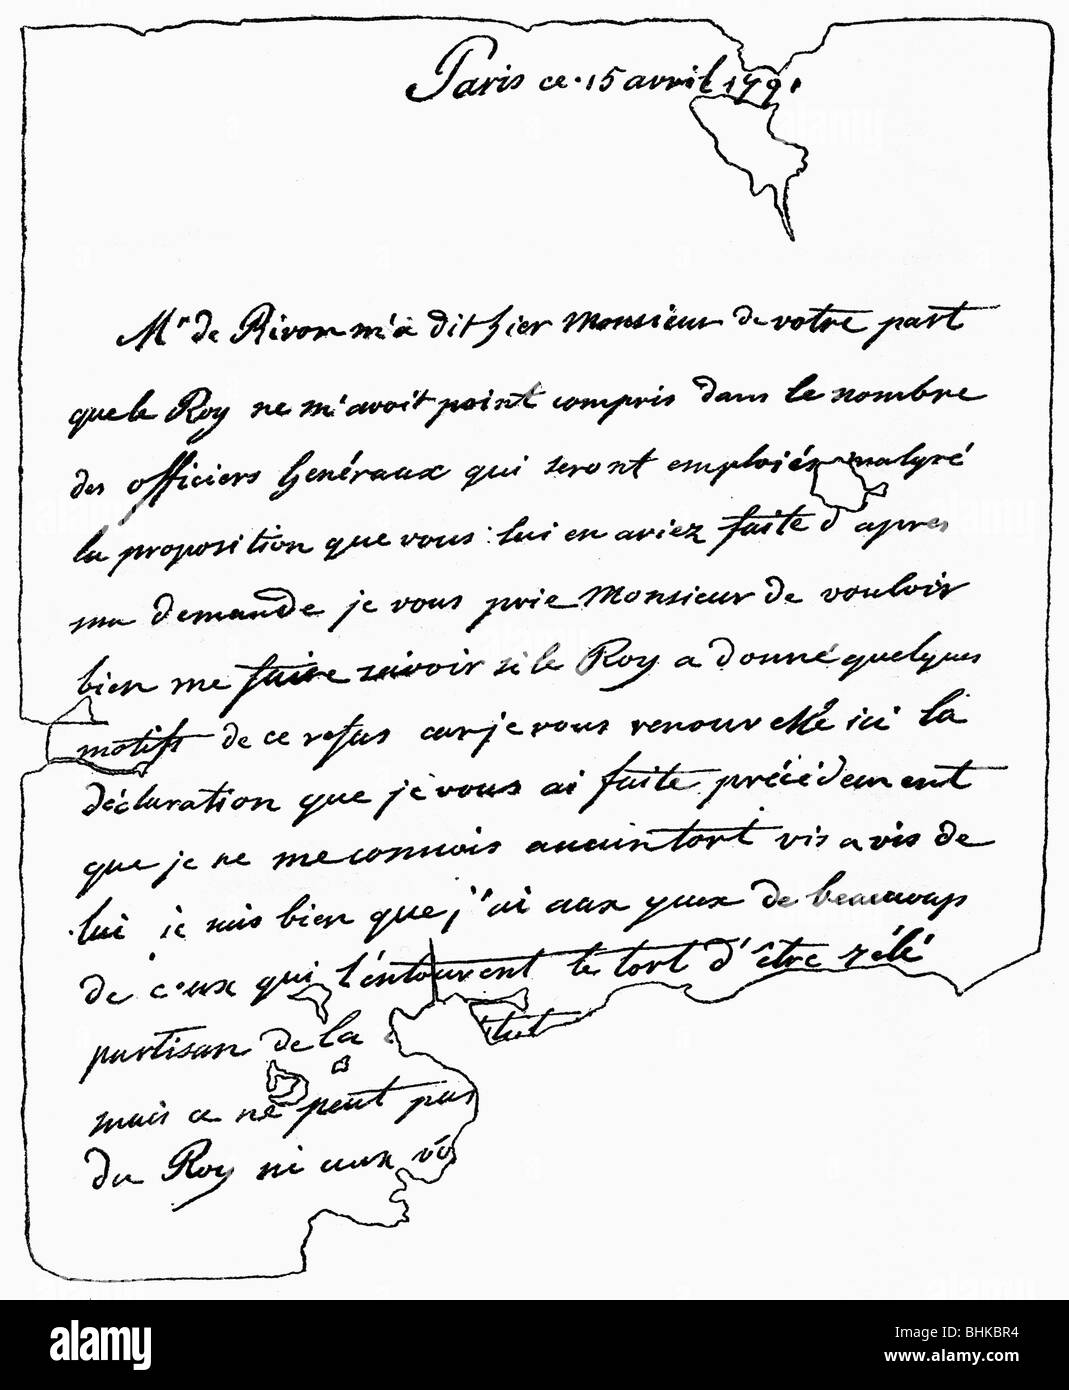 Paris ce 15 avril 1791
Mr de Rivon m'a dit hier Monsieur de votre part
que le Roy ne m'avoit point compris dans le nombre
des officiers Généraux qui seront emploiés malgré
la proposition que vous lui en aviez faite d'apres
ma demande je vous prie Monsieur de vouloir
bien me faire savoir si le Roy a donné quelques
motifs de ce refus car je vous renouvelle ici la
déclaration que je vous ai faite précédement
que je ne me connois aucun tort vis a vis de
lui je sais bien que j'ai aux yeux de beaucoup
de ceux qui l'entourent le tort d'être zélé
partisan de la
mais ce ne peut pas
du Roy ni aux vo
alamy
Image ID: BHKBR4
www.alamy.com